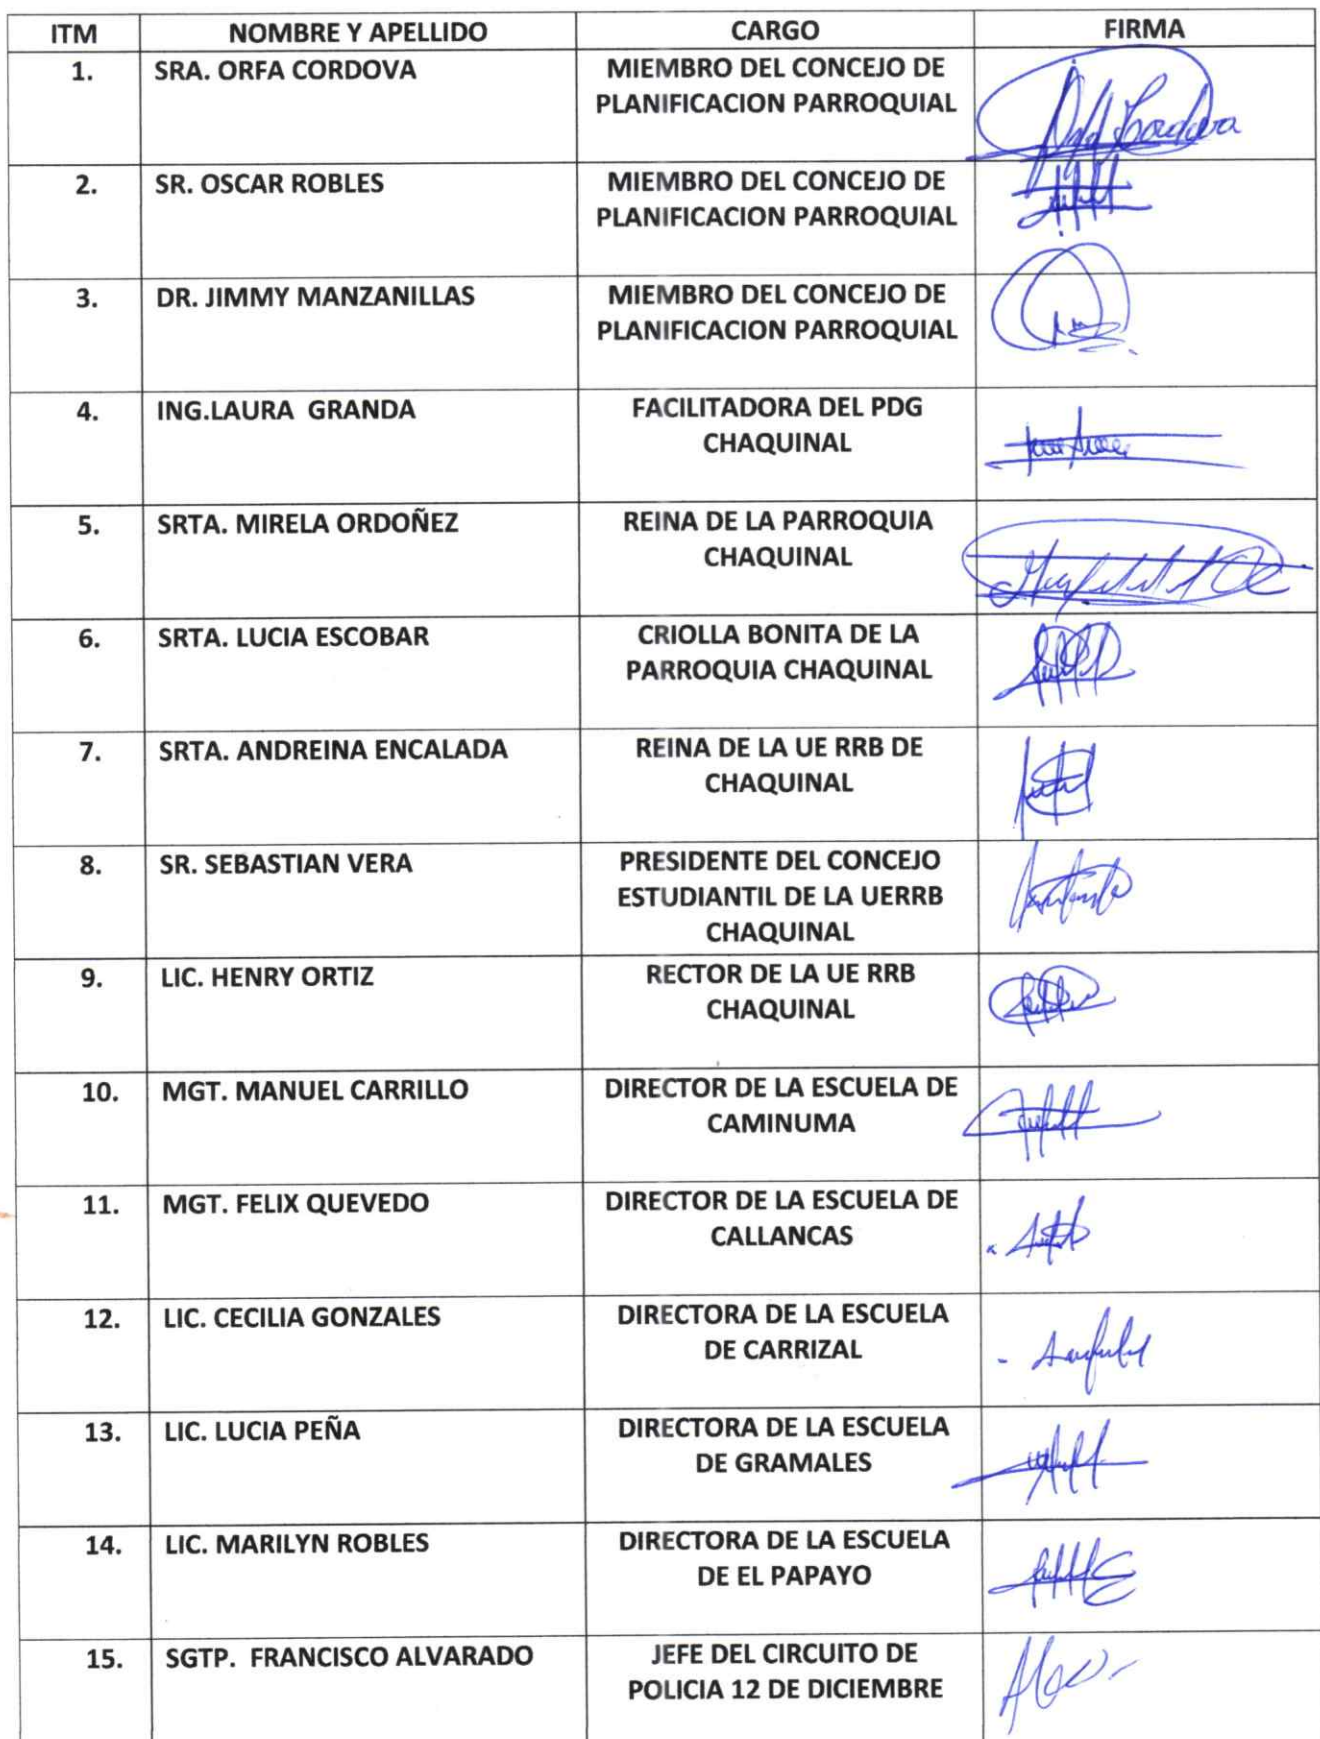 ITM NOMBRE Y APELLIDO CARGO FIRMA
1. SRA. ORFA CORDOVA MIEMBRO DEL CONCEJO DE
PLANIFICACION PARROQUIAL
2. SR. OSCAR ROBLES MIEMBRO DEL CONCEJO DE
PLANIFICACION PARROQUIAL
3. DR. JIMMY MANZANILLAS MIEMBRO DEL CONCEJO DE
PLANIFICACION PARROQUIAL
4. ING.LAURA GRANDA FACILITADORA DEL PDG
CHAQUINAL
5. SRTA. MIRELA ORDOÑEZ REINA DE LA PARROQUIA
CHAQUINAL
6. SRTA. LUCIA ESCOBAR CRIOLLA BONITA DE LA
PARROQUIA CHAQUINAL
7. SRTA. ANDREINA ENCALADA REINA DE LA UE RRB DE
CHAQUINAL
8. SR. SEBASTIAN VERA PRESIDENTE DEL CONCEJO
ESTUDIANTIL DE LA UERRB
CHAQUINAL
9. LIC. HENRY ORTIZ RECTOR DE LA UE RRB
CHAQUINAL
10. MGT. MANUEL CARRILLO DIRECTOR DE LA ESCUELA DE
CAMINUMA
11. MGT. FELIX QUEVEDO DIRECTOR DE LA ESCUELA DE
CALLANCAS
12. LIC. CECILIA GONZALES DIRECTORA DE LA ESCUELA
DE CARRIZAL
13. LIC. LUCIA PEÑA DIRECTORA DE LA ESCUELA
DE GRAMALES
14. LIC. MARILYN ROBLES DIRECTORA DE LA ESCUELA
DE EL PAPAYO
15. SGTP. FRANCISCO ALVARADO JEFE DEL CIRCUITO DE
POLICIA 12 DE DICIEMBRE